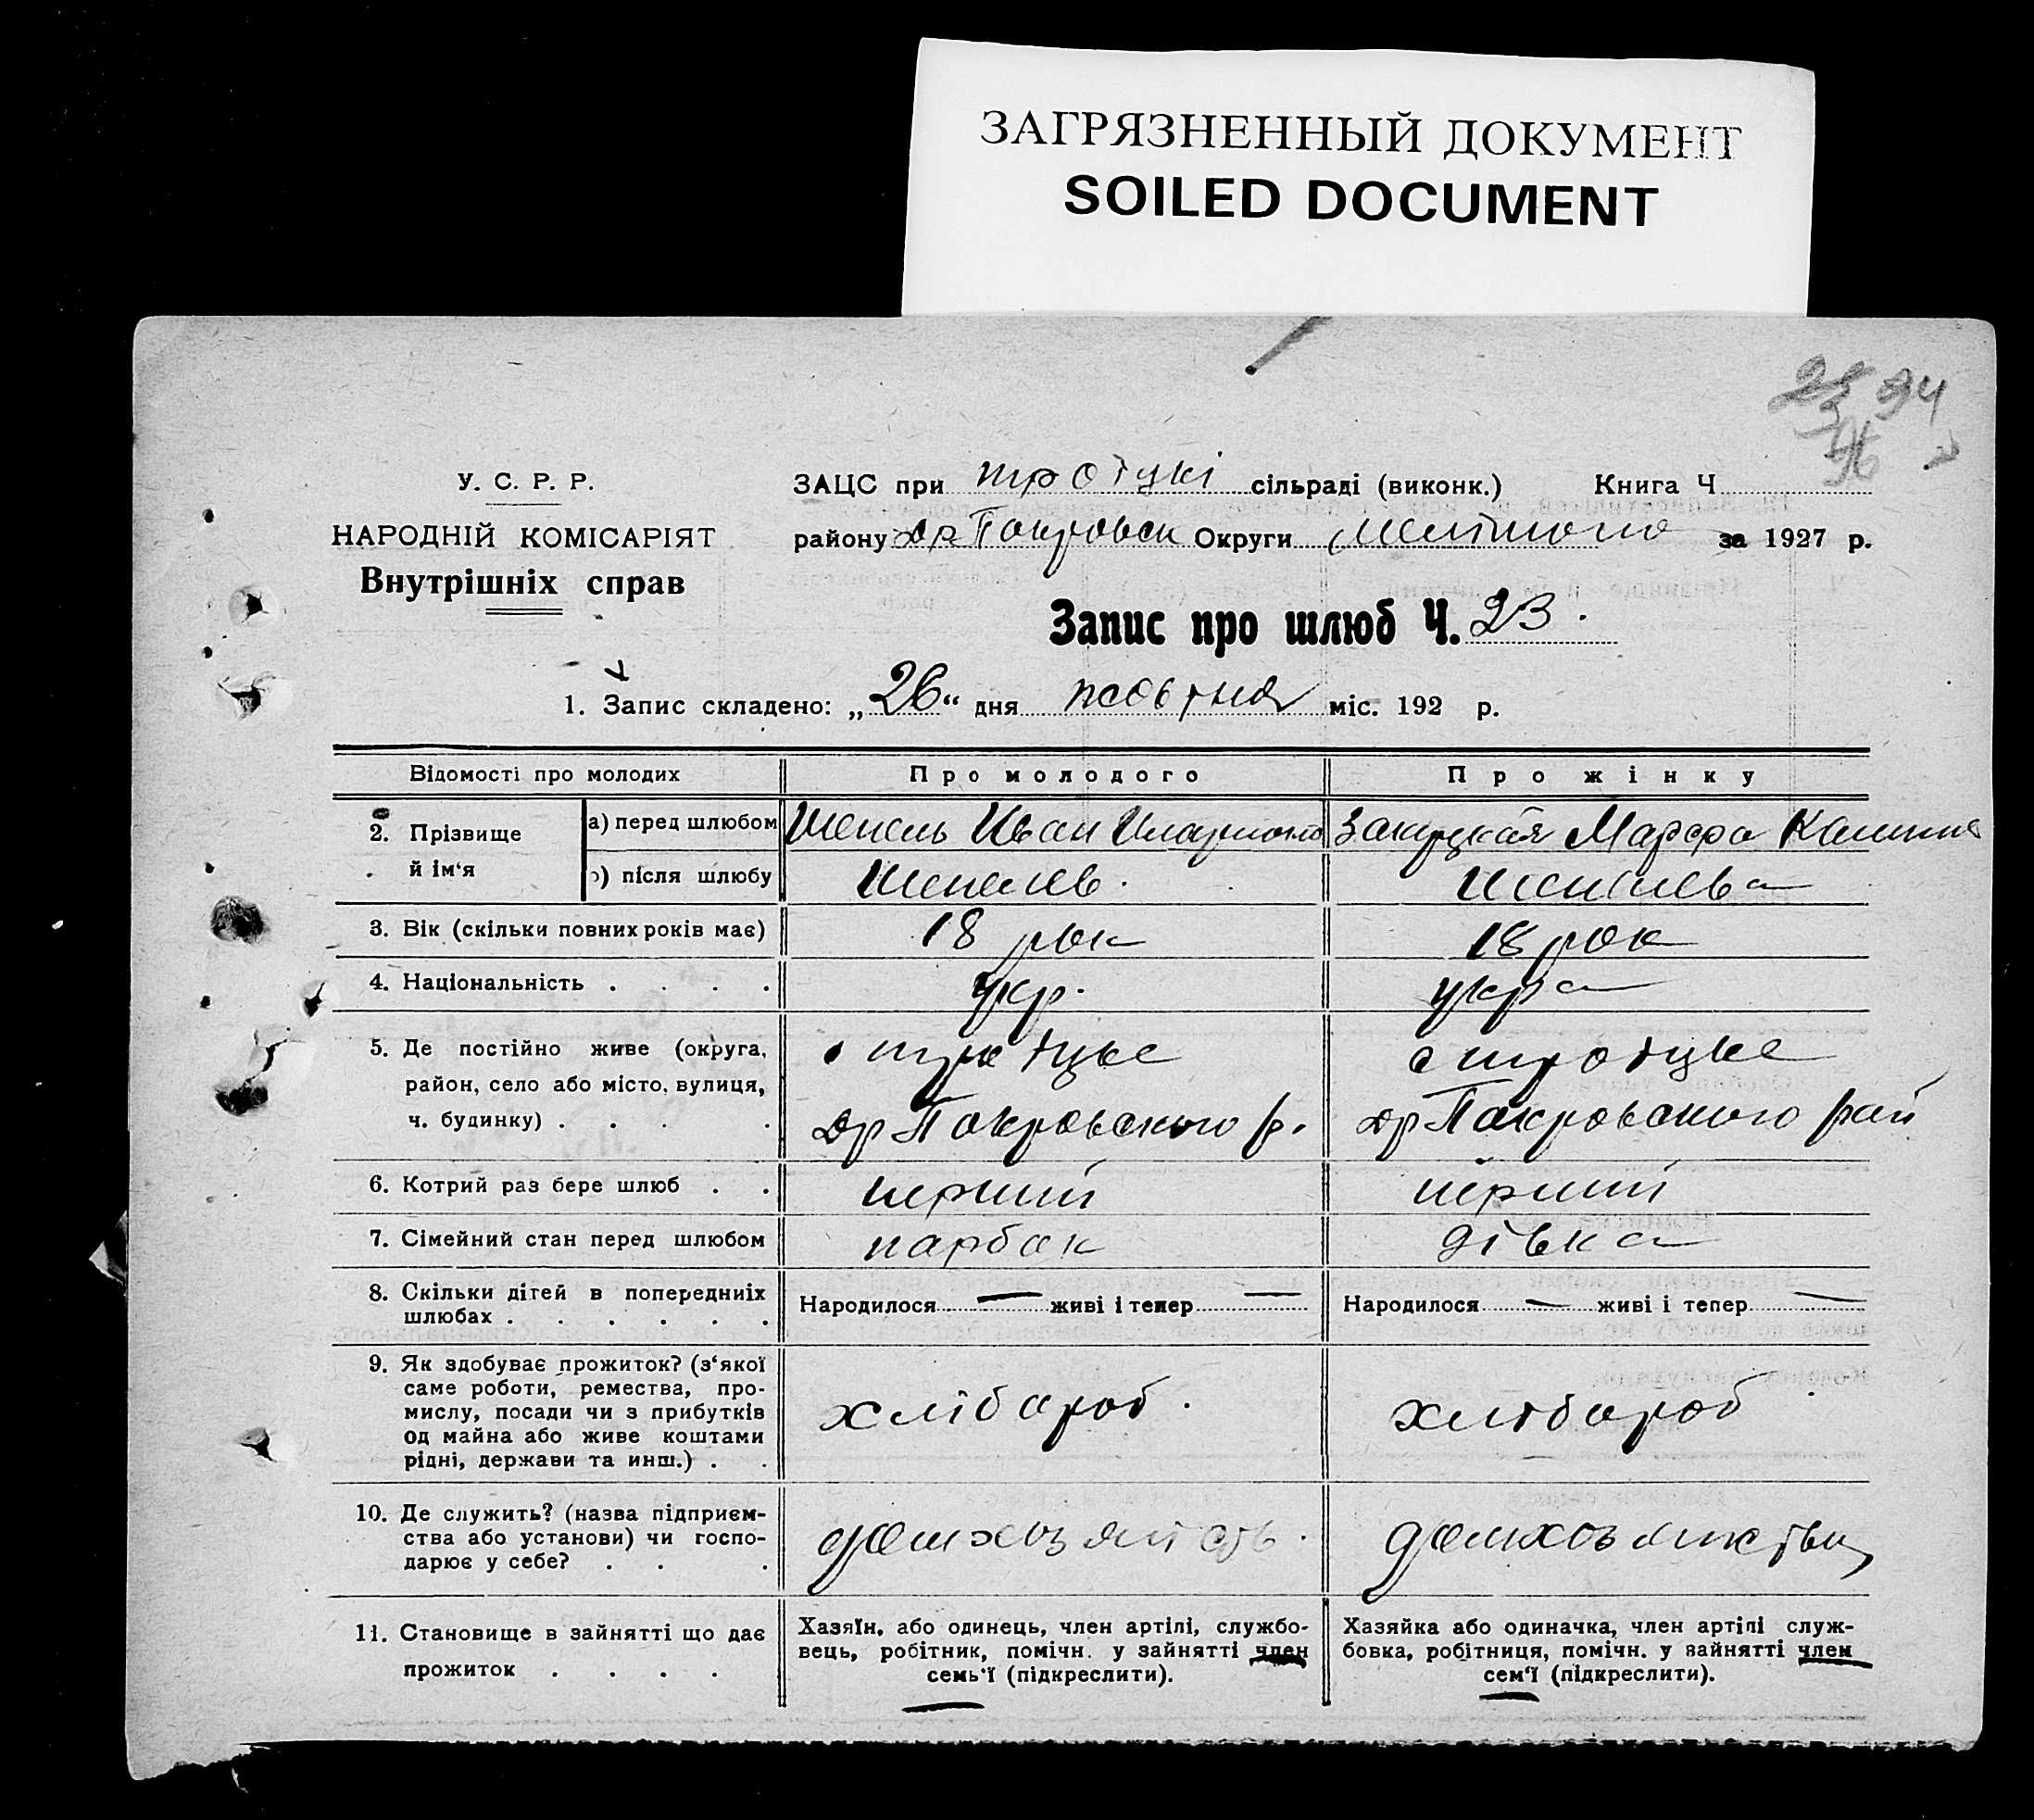 ЗАГРЯЗНЕННЫЙ ДОКУМЕНТ
SOILED DOCUMENT
94
96
У. С. Р. Р.
НАРОДНІЙ КОМІСАРІЯТ
Внутрішніх справ
ЗАЦС при троїцкі сільраді (виконк.) Книга Ч
району Др Покровск Округи за 1927 р.
Запис про шлюб Ч. 23.
1. Запис складено: „26“ дня жовтня міс. 192 р.
Відомості про молодих Про молодого Про жінку
2. Прізвище й ім‘я
а) перед шлюбом Шепель Иван Марфа
б) після шлюбу
3. Вік (скільки повних років має) 18 рок 18 рок
4. Національність укр. укра
5. Де постійно живе (округа, район, село або місто, вулиця, ч. будинку)
с троїцке
Др Покровского р.
с троїцке
Др Покровского рай
6. Котрий раз бере шлюб перший перший
7. Сімейний стан перед шлюбом парбак дівка
8. Скільки дітей в попередниіх шлюбах
Народилося — живі і тепер —
Народилося — живі і тепер —
9. Як здобуває прожиток? (з‘якої
саме роботи, ремества, про-
мислу, посади чи з прибутків
од майна або живе коштами
рідні, держави та инш.)
хлібароб.
хлібароб
10. Де служить? (назва підприєм-
ства або установи) чи госпо-
дарює у себе?
11. Становище в зайнятті що дає
прожиток
Хазяїн, або одинець, член артілі, службо-
вець, робітник, помічн. у зайнятті член
семь‘ї (підкреслити).
Хазяйка або одиначка, член артілі служ-
бовка, робітниця, помічн. у зайнятті член
сем‘ї (підкреслити).